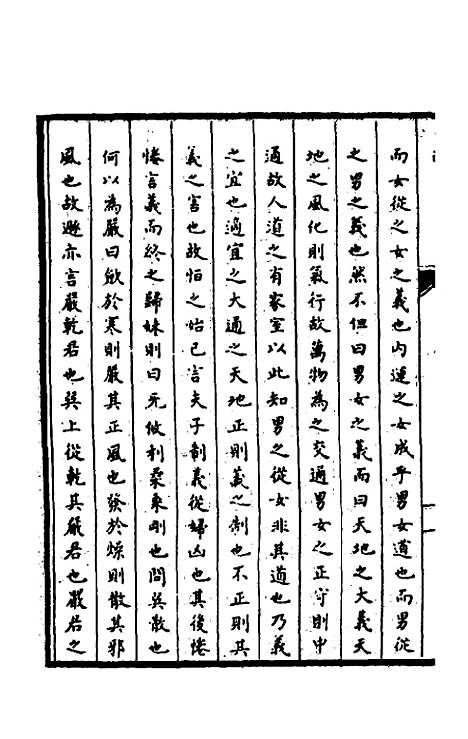 而女從之女之義也內運之女成乎男女道也而男從
之男之義也然不但曰男女之義而曰天地之大義天
地之風化則氣行故萬物為之交通男女之正守則中
通故人道之有家室以此知男之從女非其道也乃義
之宜也適宜之大通之天地正則義之制也不正則其
義之害也故怕之怡已言夫子制義從婦凶也其後惓
惓言義而終之歸妹則曰无攸利柔乘剛也問巽散也
何以為嚴曰斂於寒則嚴其正風也發於燥則散其邪
風也故遯亦言嚴乾君也巽上從乾其嚴君也嚴君之